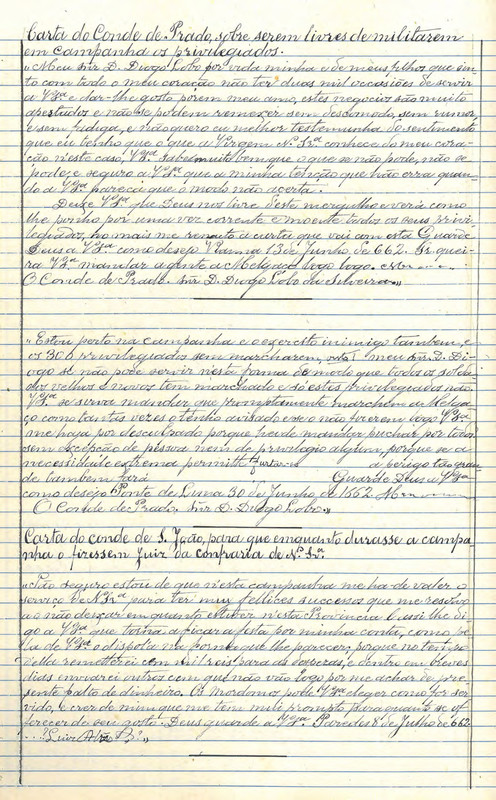 Carta do Conde de Prado, sobre serem livres de militarem
em campanha os privilegiados.
"Meu Snr D. Diogo Lobo por vida minha e de meus filhos que sin-
to com todo o meu coração não ter duas mil occasiões de servir
a VSª e dar-lhe gosto porem meu amo, estes negocios são muito
apertados e não se podem remexer sem descomodo, sem rumor
e sem fadiga, e não quero eu melhor testemunha do sentimento
que eu tenho que o que a Virgem Nª Srª conhece do meu cora-
ção n'este caso, VSª sabe muito bem que o que se não pode, não se
pode e seguro a VSª que a minha tenção que não erra quan-
do a VSª pareça que o modo não acerta.
Deixe VSª que Deus nos livre d'este mergulho e verá como
lhe ponho por uma vez corrente e moente todos os seus privi-
legiados, no mais me remeto á carta que vai com esta Guarde
Deus a VSª como desejo Vianna 13 de Junho de 662. Sr. quei-
ra VSª mandar a gente a Melgaço logo logo.
O Conde de Prado. Snr D. Diogo Lobo da Silveira."
"Estou posto na campanha e o exercito inimigo tambem, e
os 306 privilegiados sem marcharem, meu Snr D. Di-
ogo se não pode servir n'esta forma de modo que todos os solda-
dos velhos e novos tem marchado e só estes privilegiados não.
VSª se serva mandar que promptamente marchem a Melga-
ço como tantas vezes o tenho avisado e se o não fizerem logo VSª
me haja por desculpado porque heide mandar puchar por todos
sem excepção de pessoa nem de privilegio algum, porque se a
necessidade extrema permitte a perigo tão gran-
de tambem fará Guarde Deus a VSª
como desejo Ponte de Lima 30 de Junho de 1662.
O Conde de Prado. Snr D. Diogo Lobo."
Carta do conde de S. João, para que emquanto durasse a campa-
nha o fizessem Juiz da confraria de Nª Srª.
"Tão seguro estou de que n'esta campanha me ha de valer o
serviço de N Srª para ter mui fellices successos que me resolvo
a o não deixar emquanto estiver n'esta Provincia e assi lhe di-
go a VSª que torna a ficar a festa por minha conta, como
a de VSª o dispola na forma que lhe parecer, porque no tempo
d'ella remetterei cem mil reis para as despezas, e dentro em breves
dias enviarei outros cem que não vão logo por me achar de pre-
sente falto de dinheiro. Os Mordomos pode VSª eleger como for ser-
vido, e crer de mim que me tem mui prompto, para quanto se of-
ferecer de seu gosto. Deus guarde a VSª. Paredes 8 de Julho de 662
Luiz